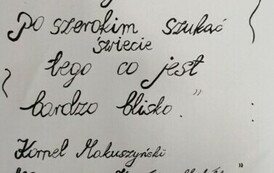 Po szerokim szukać
świecie
tego co jest
bardzo blisko."
Kornel Makuszyński